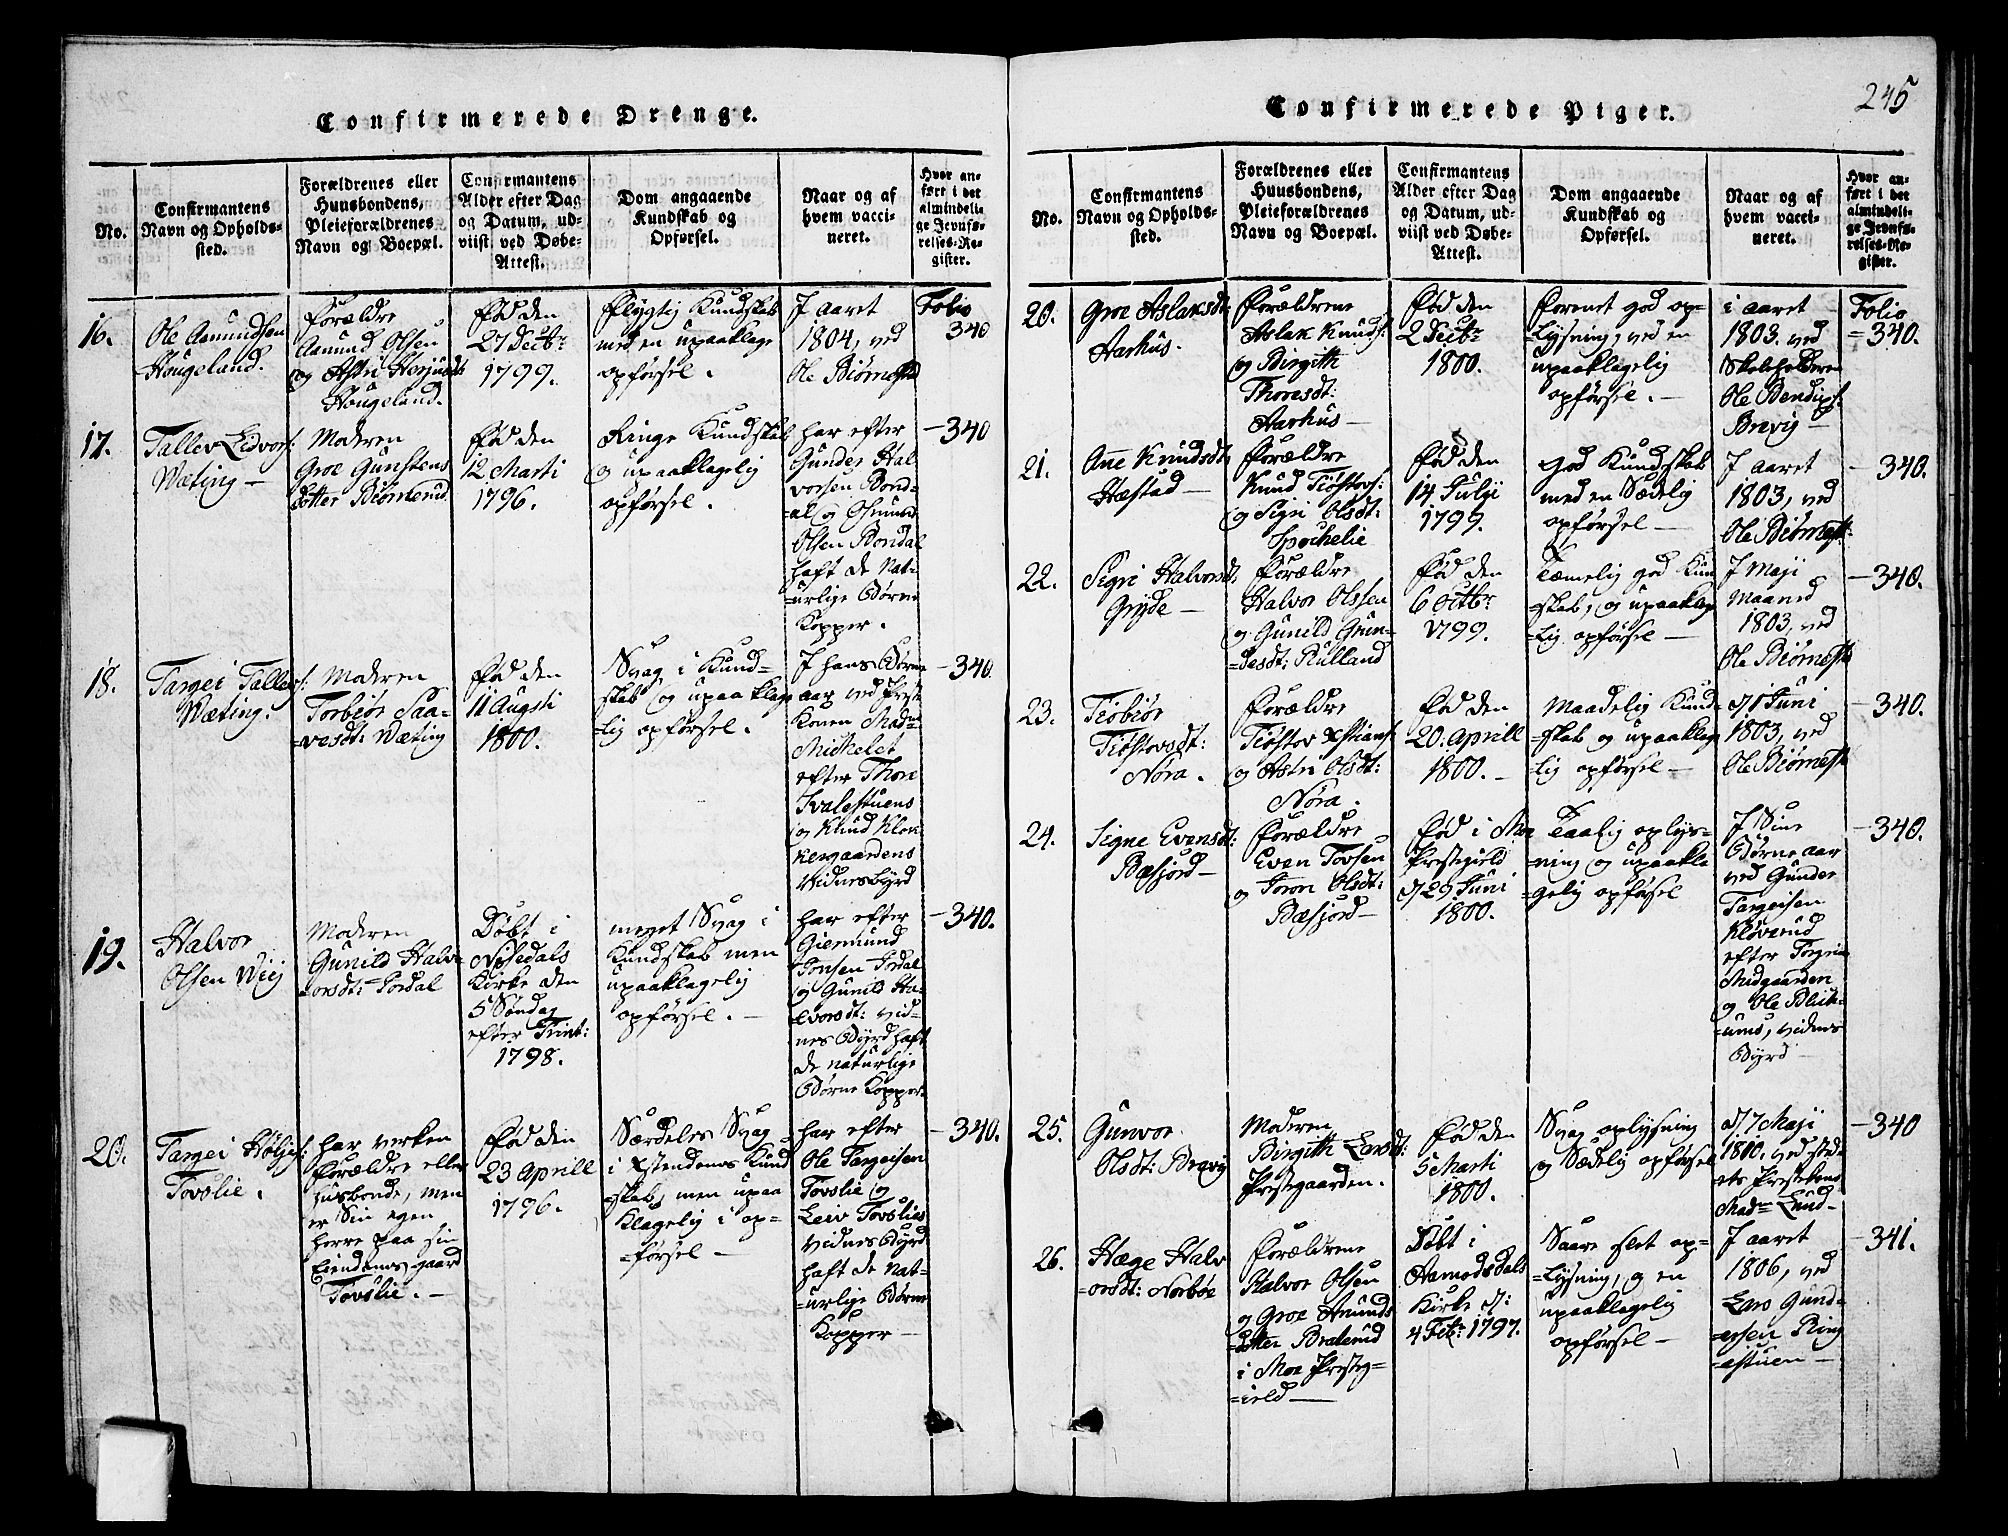 Confirmerede Drenge.
No.
Confirmantens
Navn og Opholds-
sted.
Forældrenes eller
Huusbondens,
Pleieforældrenes
Navn og Boepæl.
Confirmantens
Alder efter Dag
og Datum, ud-
viist ved Døbe-
Attest.
Dom angaaende
Kundskab og
Opførsel.
Naar og af
hvem vacci-
neret.
Hvor an-
ført i det
almindeli-
ge Jevnfø-
relses-Re-
gister.
16.
Ole Aamundsen
Hougeland.
Forældre
Aamund Olsen
og Astri Herjusdt
Hougeland.
Fød den
27 Decbr
1799.
Flygtig Kundskab
med en upaaklage
opførsel.
J aaret
1804, ved
Ole Biørnestd
Folio
340
17.
Tallev Lidvors:
Wæting —
Moderen
Groe Gunstens
dotter Biørnerud
Fød den
12 Marti
1796.
Ringe Kundskab
og upaaklagelig
opførsel.
har efter
Gunder Hal
vorsen Bond-
=al og Osmund
Olsen Bondal
haft de Nat-
=urlige Børne
Kopper.
— 340
18.
Targei Tallevs:
Wæting.
Moderen
Torbiør Saa-
=vesdt: Wæting
Fød den
11 Augsti
1800.
Svag i Kund=
skab og upaaklage
=lig opførsel.
J hans Børne
aar ved Præste
Konen Madm
Michelet
efter Thore
Kvalestuens
og Knud Klok
kergaardens
Vidnesbyrd
— 340
19.
Halvor
Olsen Wiig
Moderen
Gunild Halv-
orsdt: Jordal
Døbt i
Nissedals
Kirke den
5 Søndag
efter Trint:
1798.
meget Svag i
Kundskab men
upaaklagelig
opførsel. —
har efter
Giermund
Jonsen Jordal
og Gunild Ha-
lvorsdt: vid-
nes Byrd haft
de naturlige
Børne Kopper.
— 340.
20.
Targei Høljes:
Tovslie.
har verken
Forældre eller
Husbonde, men
er Sin egen
herre paa sin
Eiendoms gaard
Tovslie. —
Fød den
23 Aprill
1796.
Særdeles Svag
i Christendoms Kund
skab, men upaa
Klagelig i op-
=førsel —
har efter
Ole Targeisen
Tovslie og
Leiv Tovslies
vidnes Byrd
haft de Nat-
=urlige Børne
Kopper —
— 340.
245
Confirmerede Piger.
No.
Confirmantens
Navn og Opholds-
sted.
Forældrenes eller
Huusbondens,
Pleieforældrenes
Navn og Boepæl.
Confirmantens
Alder efter Dag
og Datum, ud-
viist ved Døbe-
Attest.
Dom angaaende
Kundskab og
Opførsel.
Naar og af
hvem vacci-
neret.
Hvor an-
ført i det
almindeli-
ge Jevnfø-
relses-Re-
gister.
20.
Groe Aslaksdt:
Aarhus.
Forældrene
Aslak Knuds:
og Birgith
Thoresdt:
Aarhus —
Fød den
2 Decbr
1800.
Forenet god op-
Lysning, ved en
upaaklagelig
opførsel. —
i aaret
1803. ved
Skoleholderen
Ole Bendixs:
Brevig —
Folio
=340.
21.
Ane Knudsdt:
Hæstad —
Forældre
Knud Tiøstovs:
og Sigri Olsdt:
Fød den
14 Julii
1799.
God Kundskab
med en Sædelig
opførsel —
J aaret
1803, ved
Ole Biørnestd:
— 340.
22.
Sigri Halvorsdt:
Gryde —
Forældre
Halvor Olssen
og Gunild Gun-
=desdt: Rulland
Fød den
6 Octbr
1799.
Temelig god Kun
skab, og upaaklage
=Lig opførsel —
J Maji
Maaned
1803, ved
Ole Biørnestd
— 340.
23.
Tiøbiør
Tiøstovsdt:
Nøra.
Forældre
Tiøstov Xstians:
og Astri Olsdt:
Nøra.
Fød den
20: Aprill
1800. —
Maadelig Kund-
=skab og upaaklage
lig opførsel —
d 1 Juni
1803, ved
Ole Biørnestd
— 340.
24.
Signe Evensdt:
Bæsjord —
Forældre
Even Tovsen
og Joron Olsdt:
Bæsjord —
Fød i Moe
Prestegield
d 29 Juni
1800.
Taalig oplys-
=ning og upaakla
=gelig opførsel
J Sine
Børne aar
ved Gunder
Targeisen
Kløverud
efter Torgrim
Midgaarden
og Ole Bleik-
=ums, vidnes
Byrd
— 340.
25.
Gunvor
Olsdt: Brevig
Moderen
Birgith Larsdt:
Prestegaarden.
Fød den
5 Marti
1800.
Svag oplysning
og Sædelig opførsel
d 7 Maji
1800. ved sted-
ets Prestekone
Madm Lund —
— 340
26.
Hæge Halv
=orsdt: Norbøe
Forældrene
Halvor Olsen
og Groe Amunds
dotter Bralerud
i Moe Presteg-
=ield —
Døbt i
Aamodsdals
Kirke d:
4 Febr: 1797.
Saare slet op-
=Lysning, og en
upaaklagelig
opførsel —
J aaret
1806, ved
Lars Gund-
ersen Ring
=estuen —
— 341.